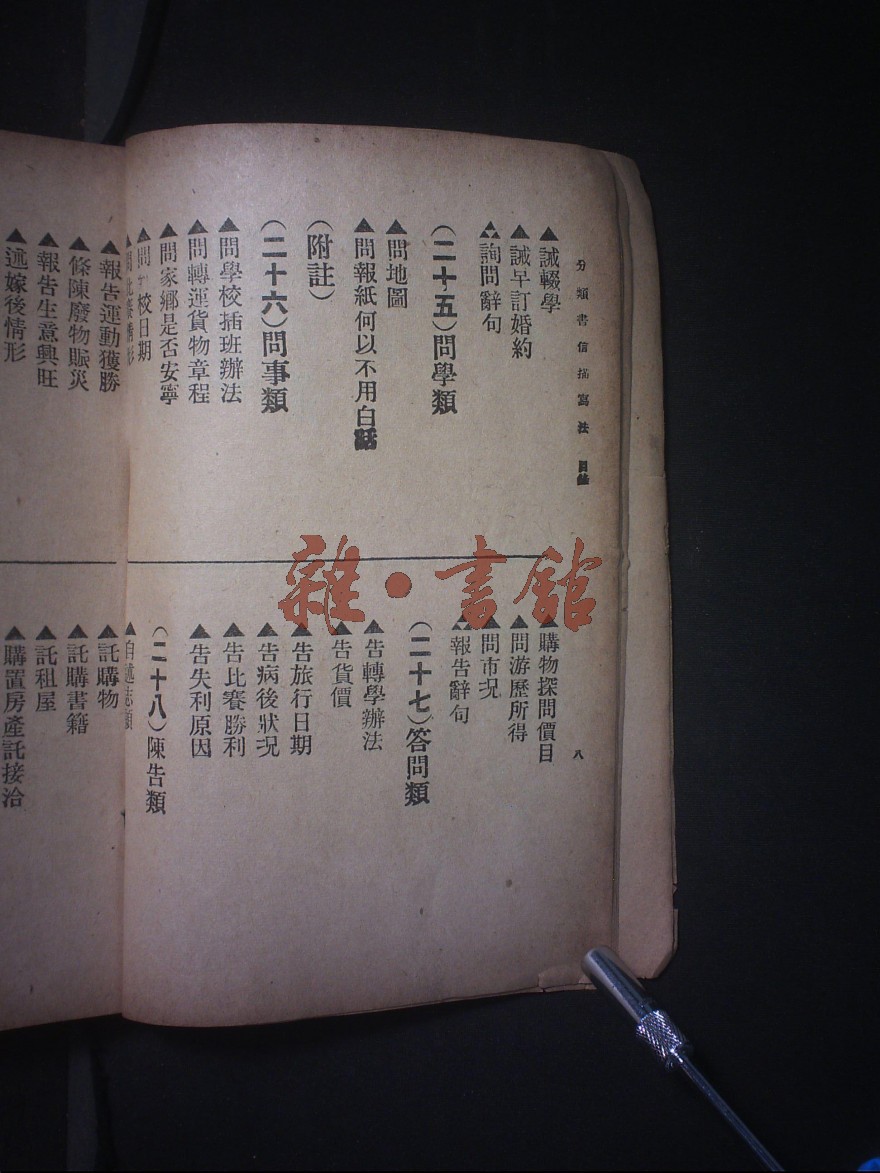 分類書信描寫法 目錄
▲誡輟學
▲誡早訂婚約
詢問辭句
(二十五)問學類
▲問地圖
▲問報紙何以不用白話
(附註)
(二十六)問事類
▲問學校插班辦法
▲問轉運貨物章程
▲問家鄉是否安寧
▲問 校日期
▲問比賽情形
▲購物探問價目
▲問游歷所得
▲問市况
報告辭句
(二十七)答問類
▲告轉學辦法
▲告貨價
▲告旅行日期
▲告病後狀况
▲告比賽勝利
▲告失利原因
(二十八)陳告類
▲自述志願
八
▲報告運動獲勝
▲條陳廢物賑災
▲報告生意興旺
▲述嫁後情形
▲託購物
▲託購書籍
▲託租屋
▲購置房產託接洽
雜·書館